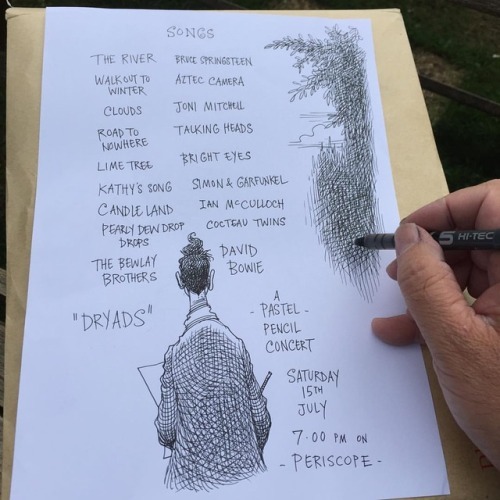 SONGS
THE RIVER BRUCE SPRINGSTEEN
WALK OUT TO
WINTER
AZTEC CAMERA
CLOUDS JONI MITCHELL
ROAD TO
NOWHERE
TALKING HEADS
LIME TREE BRIGHT EYES
KATHY'S SONG SIMON & GARFUNKEL
CANDLE LAND IAN McCULLOCH
PEARLY DEW DROP
DROPS
COCTEAU TWINS
THE BEWLAY
BROTHERS
DAVID
BOWIE
"DRYADS"
A
- PASTEL -
PENCIL
CONCERT
SATURDAY
15TH
JULY
7.00 PM ON
- PERISCOPE -
HI-TEC